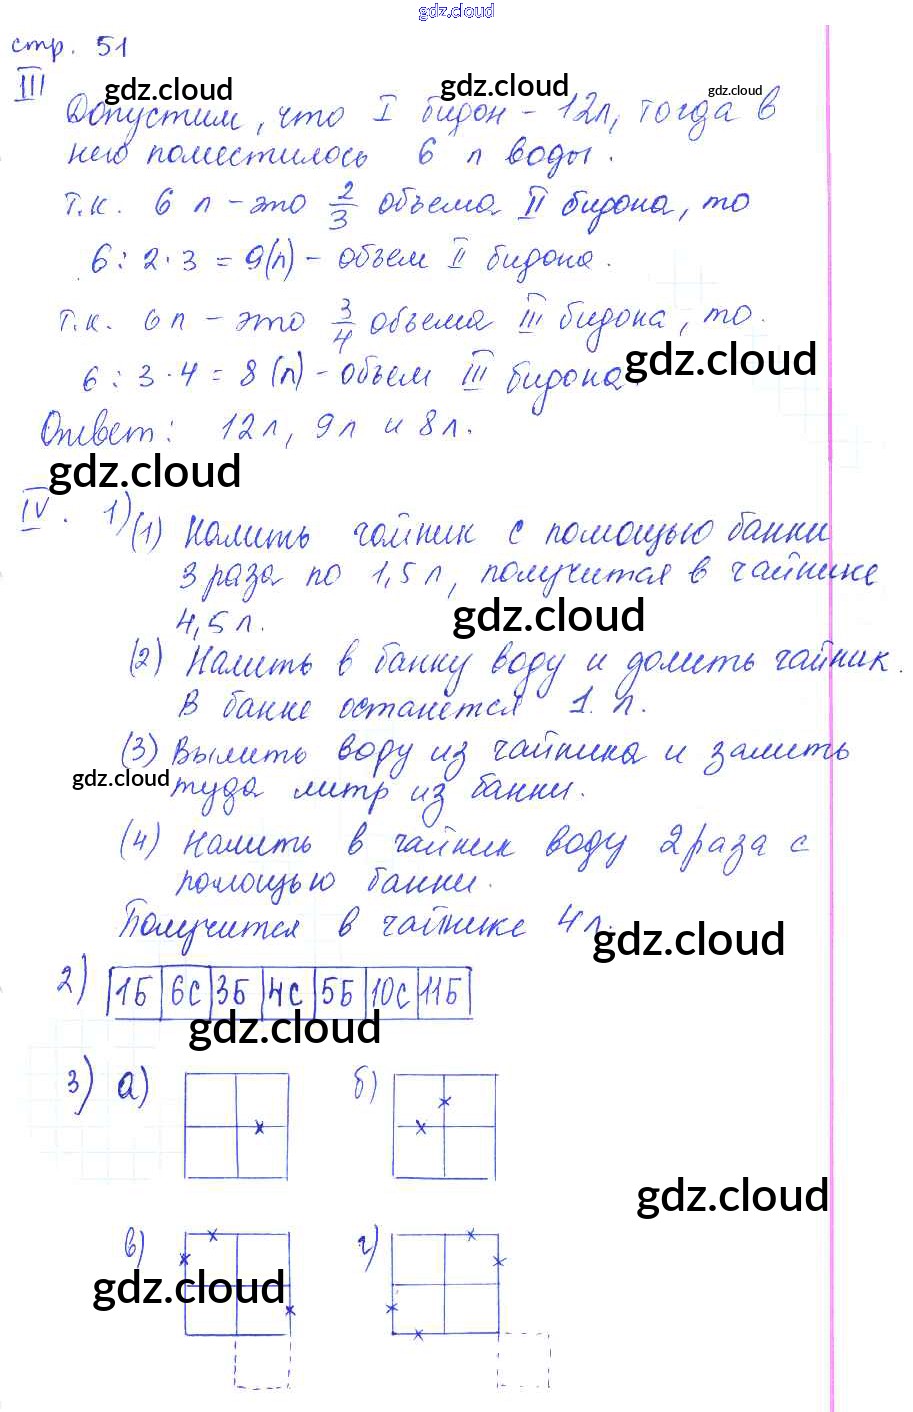 gdz.cloud
стр. 51
III
gdz.cloud gdz.cloud gdz.cloud
Допустим, что I бидон - 12л, тогда в
него поместилось 6 л воды.
т.к. 6 л - это 2/3 объема II бидона, то
6 : 2 · 3 = 9(л) - объем II бидона.
т.к. 6л - это 3/4 объема III бидона, то
gdz.cloud
6 : 3 · 4 = 8 (л) - объем III бидона
Ответ: 12л, 9л и 8л.
gdz.cloud
IV. 1) (1) Налить чайник с помощью банки
3 раза по 1,5 л, получится в чайнике
4,5 л.
gdz.cloud
(2) Налить в банку воду и долить чайник.
В банке останется 1 л.
(3) Вылить воду из чайника и залить
gdz.cloud
туда литр из банки.
(4) Налить в чайник воду 2 раза с
помощью банки.
Получится в чайнике 4 л.
gdz.cloud
2) 1Б 6С 3Б 4С 5Б 10С 11Б
gdz.cloud
3) а) б)
gdz.cloud
в) г)
gdz.cloud